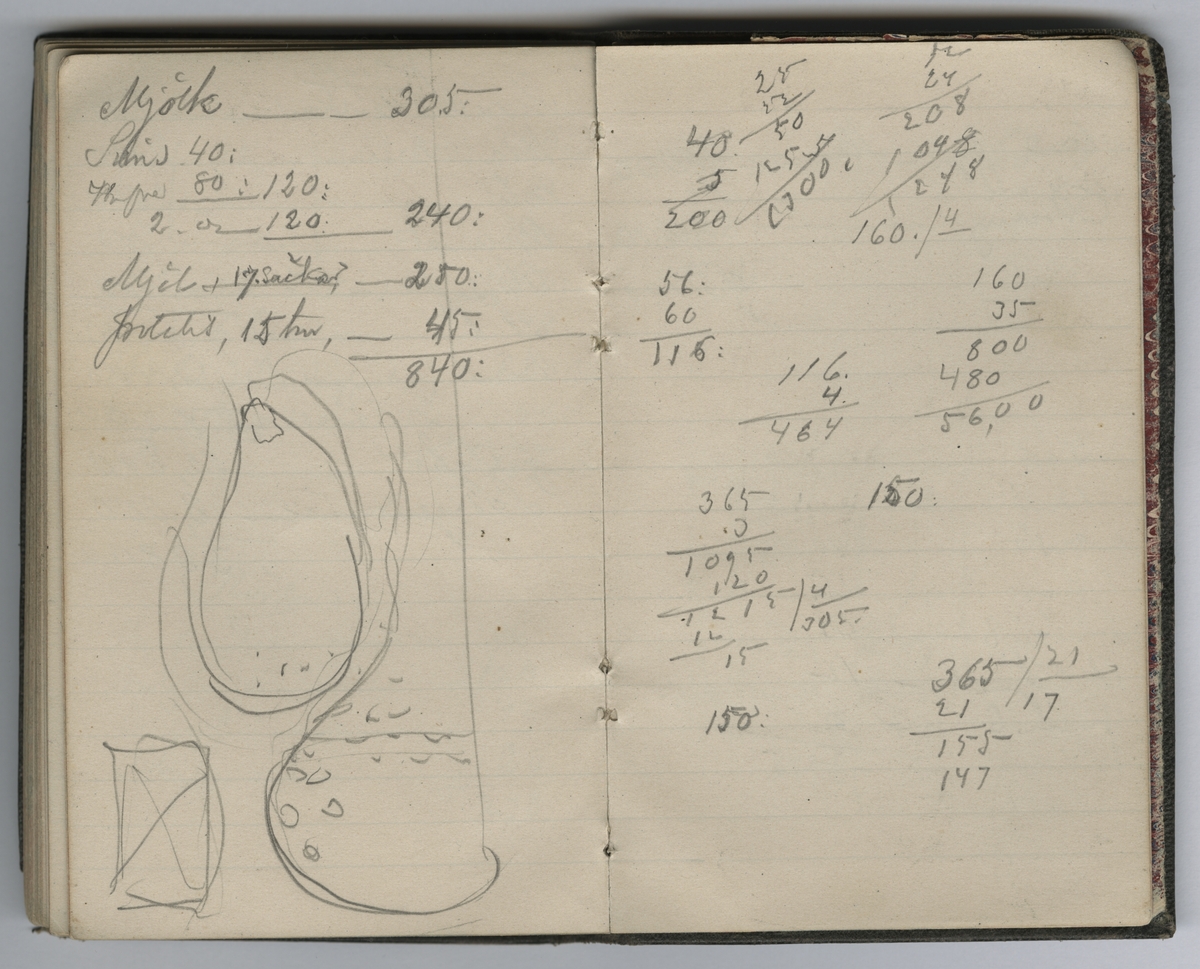 Mjölk 305:
40:
80: 120:
2 120. 240:
Mjöl + 17. säckar, 280:
15 tnr, 45:
840:
25
50
1300
40.
5
200
24
208
1048
248
160./4
56:
60
116:
116.
4.
464
160
35
800
480
56,00
365
.3
1095
120
1215 /4
305.
12
15
150:
150:
365 /21
17
21
155
147